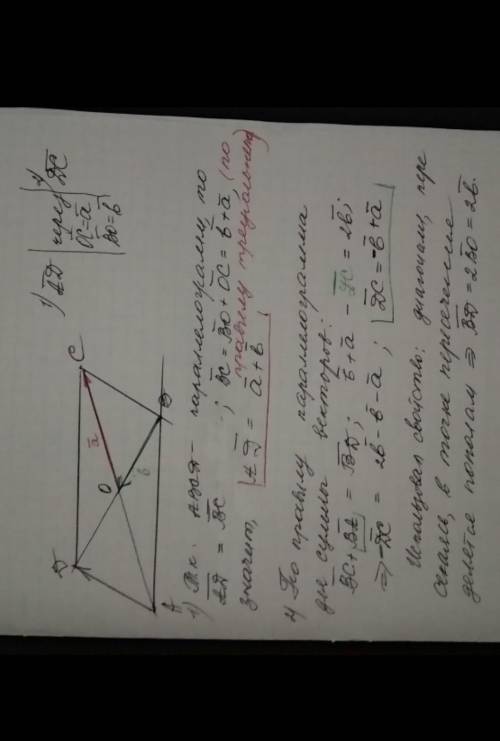 1) AD̅ | через | 4) DC̅
OC̅ = a̅
BO̅ = b̅
D
C
a̅
O
b̅
A
B
1) Т.к. ABCD – параллелограмм, то
AD̅ = BC̅ ; BC̅ = BO̅ + OC̅ = b̅ + a̅ (по
правилу треугольника)
значит, AD̅ = a̅ + b̅
4) По правилу параллелограмма
для суммы векторов:
BC̅ + BA̅ = BD̅ ; b̅ + a̅ - DC̅ = 2b̅ ;
⇒ -DC̅ = 2b̅ - b̅ - a̅ ; DC̅ = -b̅ + a̅
Использовал свойство: диагонали, пере
секаясь, в точке пересечения
делятся пополам ⇒ BD̅ = 2BO̅ = 2b̅.